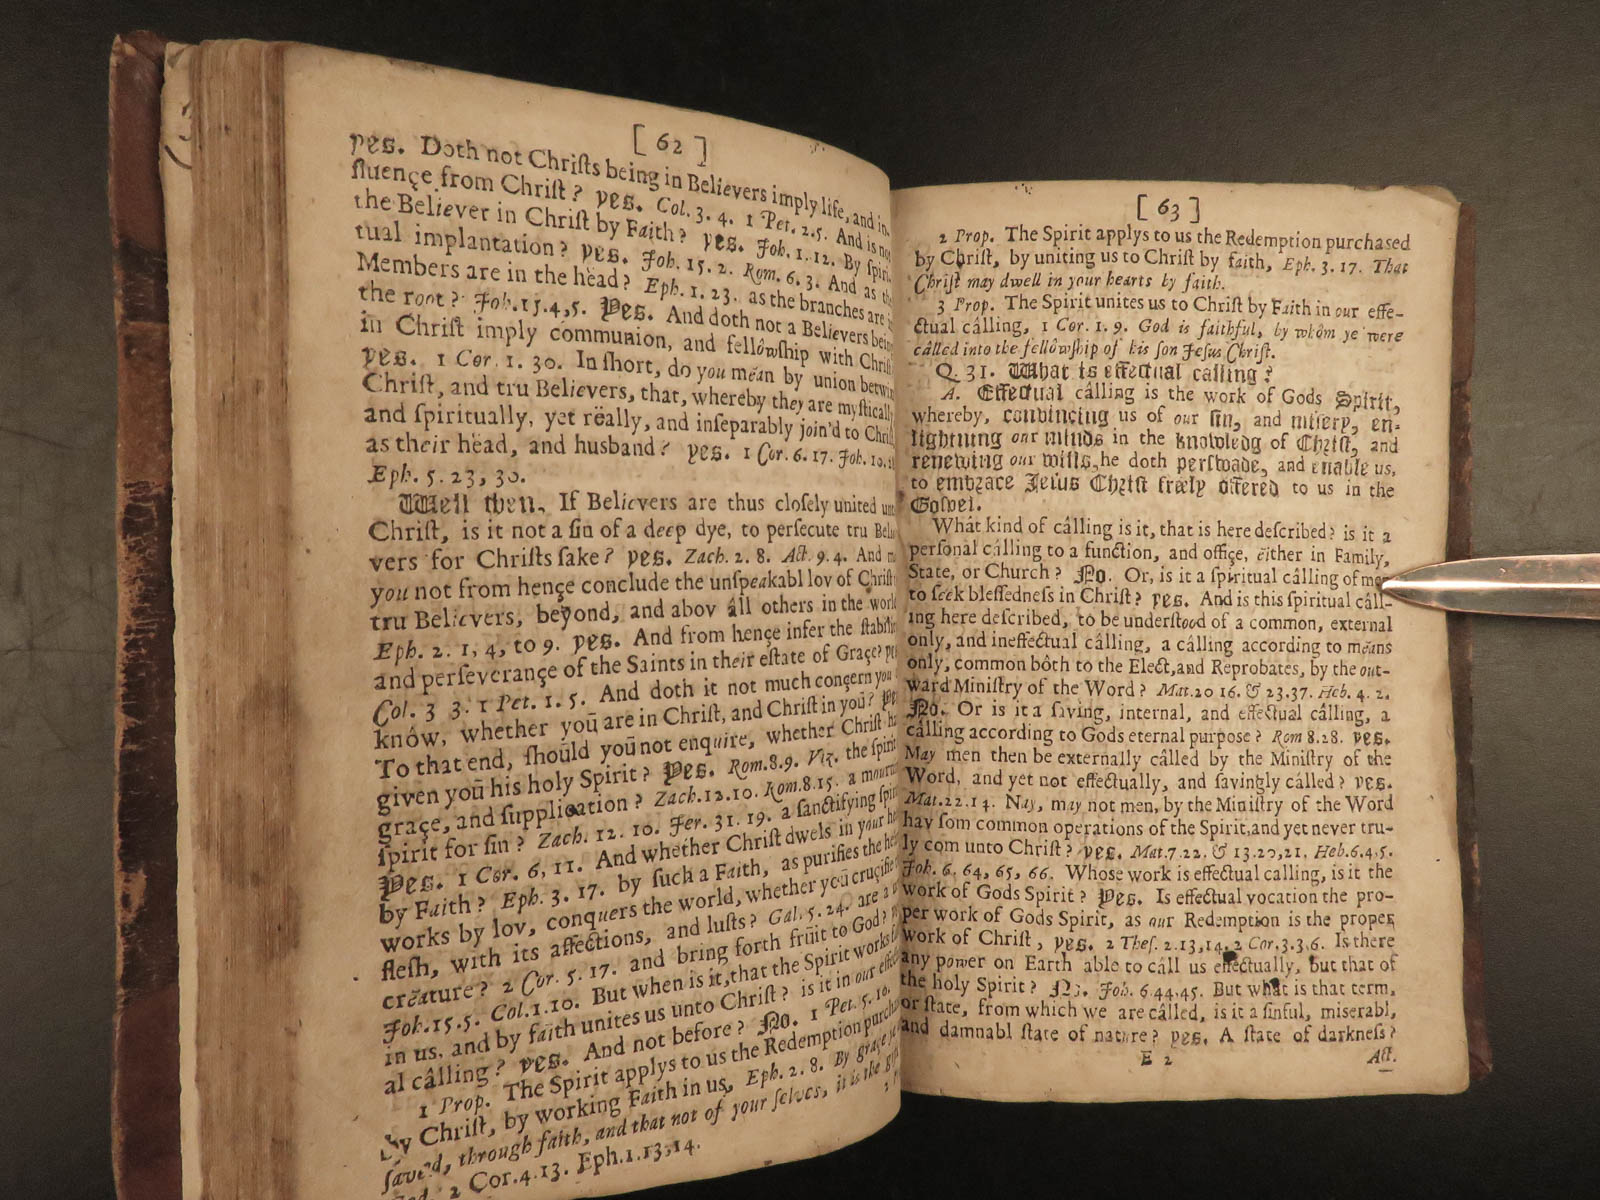 [ 62 ]
yes. Doth not Chriſts being in Believers imply life, and in-
fluençe from Chriſt? yes. Col. 3. 4. 1 Pet. 2. 5. And is not
the Believer in Chriſt by Faith? yes. Joh. 1. 12. By ſpiri-
tual implantation? yes. Joh. 15. 2. Rom. 6. 3. And as the
Members are in the head? Eph. 1. 23. as the branches are in
the root? Joh. 15. 4, 5. Yes. And doth not a Believers being
in Chriſt imply communion, and fellôwſhip with Chriſt
yes. 1 Cor. 1. 30. In ſhort, do you mĕan by union betwin
Chriſt, and tru Believers, that, whereby they are myſtically
and ſpiritually, yet rëally, and inſeparably join'd to Chriſt
as their hëad, and husband? yes. 1 Cor. 6. 17. Joh. 10.
Eph. 5. 23, 30.
Well then, If Believers are thus cloſely united unto
Chriſt, is it not a ſin of a deep dye, to perſecute tru Belie
vers for Chriſts ſake? yes. Zach. 2. 8. Act. 9. 4. And
you not from hençe conclude the unſpeakabl lov of Chriſt
tru Believers, beyond, and abov âll others in the world
Eph. 2. 1, 4, to 9. yes. And from hençe infer the ſtability
and perſeverançe of the Saints in their eſtate of Graçe? yes
Col. 3 3. 1 Pet. 1. 5. And doth it not much conçern you
knôw, whether yoū are in Chriſt, and Chriſt in yoū? yes
To that end, ſhoūld yoū not enquire, whether Chriſt ha
given yoū his holy Spirit? Yes. Rom. 8. 9. Viz. the ſpirit
graçe, and ſupplication? Zach. 12. 10. Rom. 8. 15. a mourn
ſpirit for ſin? Zach. 12. 10. Jer. 31. 19. a ſanctifying ſpirit
Yes. 1 Cor. 6, 11. And whether Chriſt dwels in your he
by Faith? Eph. 3. 17. by ſuch a Faith, as purifies the he
works by lov, conquers the world, whether yoū crucifie
fleſh, with its affections, and luſts? Gal. 5. 24. are a
crĕature? 2 Cor. 5. 17. and bring forth frūit to God?
Joh. 15. 5. Col. 1. 10. But when is it, that the Spirit works
in us, and by faith unites us unto Chriſt? is it in our effect
al câlling? yes. And not before? No. 1 Pet. 5. 10.
1 Prop. The Spirit applys to us the Redemption purchas
by Chriſt, by working Faith in us, Eph. 2. 8. By grace
ſaved, through faith, and that not of your ſelves, it is the gift
2 Cor. 4. 13. Eph. 1. 13, 14.
[ 63 ]
2 Prop. The Spirit applys to us the Redemption purchased
by Chriſt, by uniting us to Chriſt by faith, Eph. 3. 17. That
Chriſt may dwell in your hearts by faith.
3 Prop. The Spirit unites us to Chriſt by Faith in our effe-
ctual câlling, 1 Cor. 1. 9. God is faithful, by whom ye were
câlled into the fellôwſhip of his ſon Jeſus Chriſt.
Q. 31. What is effectual calling?
A. Effectual câlling is the work of Gods Spirit,
whereby, convincing us of our ſin, and miſery, en-
lightning our minds in the knowledg of Chriſt, and
renewing our wills, he doth perſwade, and enable us,
to embrace Jeſus Chriſt freely offered to us in the
Goſpel.
Whât kind of câlling is it, that is here deſcribed? is it a
perſonal câlling to a function, and offiçe, ēither in Family,
State, or Church? No. Or, is it a ſpiritual câlling of men
to ſeek bleſſedneſs in Chriſt? yes. And is this ſpiritual câll-
ing here deſcribed, to be underſtood of a common, external
only, and ineffectual câlling, a câlling according to mĕans
only, common bôth to the Elect, and Reprobates, by the out-
ward Miniſtry of the Word? Mat. 20 16. & 23. 37. Heb. 4. 2.
No. Or is it a ſaving, internal, and effectual câlling, a
câlling according to Gods eternal purpoſe? Rom 8. 28. yes.
May men then be externally câlled by the Miniſtry of the
Word, and yet not effectually, and ſavingly câlled? yes.
Mat. 22. 14. Nay, may not men, by the Miniſtry of the Word
hav ſom common operations of the Spirit, and yet never tru-
ly com unto Chriſt? yes. Mat. 7. 22. & 13. 20, 21, Heb. 6. 4, 5.
Joh. 6. 64, 65, 66. Whoſe work is effectual calling, is it the
work of Gods Spirit? Yes. Is effectual vocation the pro-
per work of Gods Spirit, as our Redemption is the proper
work of Chriſt, yes. 2 Theſ. 2. 13, 14. 2 Cor. 3. 3, 6. Is there
any power on Earth able to câll us effectually, but that of
the holy Spirit? No. Joh. 6. 44, 45. But what is that term,
or ſtate, from which we are câlled, is it a ſinful, miſerabl,
and damnabl ſtate of nature? yes. A ſtate of darkneſs?
E 2 Act.